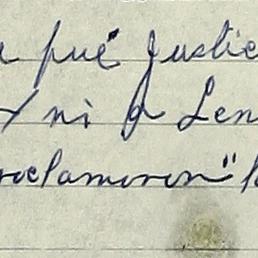 fué Justic
ni a Len
roclamaron" l